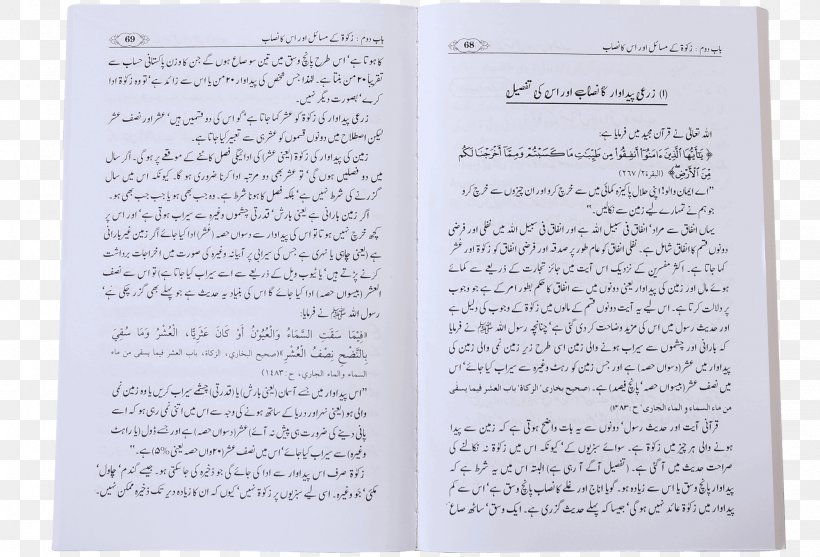 باب دوم : زکوٰۃ کے مسائل اور اس کا نصاب
68
(۱) زرعی پیداوار کا نصاب اور اس کی تفصیل
اللہ تعالیٰ نے قرآن مجید میں فرمایا ہے:
﴿ يَٰٓأَيُّهَا الَّذِينَ ءَامَنُوٓا أَنفِقُوا مِن طَيِّبَٰتِ مَا كَسَبْتُمْ وَمِمَّآ أَخْرَجْنَا لَكُم
مِّنَ الْأَرْضِ ﴾ (البقرۃ ۲/ ۲۶۷)
"اے ایمان والو! اپنی حلال پاکیزہ کمائی میں سے خرچ کرو اور ان چیزوں سے خرچ کرو
جو ہم نے تمہارے لیے زمین سے نکالیں۔"
یہاں انفاق سے مراد' انفاق فی سبیل اللہ ہے اور انفاق فی سبیل اللہ میں نفلی اور فرضی
دونوں قسم کا انفاق شامل ہے۔ نفلی انفاق کو عام طور پر صدقہ اور فرضی انفاق کو زکوٰۃ اور عشر
کہا جاتا ہے۔ اکثر مفسرین کے نزدیک اس آیت میں جائز تجارت کے ذریعے سے کمائے
ہوئے مال اور زمین کی پیداوار یعنی دونوں میں سے انفاق کا حکم بطور امر کے ہے جو وجوب
پر دلالت کرتا ہے۔ اس لیے یہ آیت دونوں قسم کے مالوں میں زکوٰۃ کے وجوب کی دلیل ہے
اور حدیث رسول میں اس کی مزید وضاحت کر دی گئی ہے' چنانچہ رسول اللہ ﷺ نے فرمایا
کہ بارانی اور چشموں سے سیراب ہونے والی زمین اسی طرح زیر زمین نمی والی زمین کی
پیداوار میں عشر (دسواں حصہ) ہے اور جس زمین کو رہٹ وغیرہ سے سیراب کیا جائے' اس
میں نصف عشر (بیسواں حصہ' پانچ فیصد) ہے۔ (صحیح بخاری' الزکاۃ' باب العشر فیما یسقی
من ماء السماء والماء الجاری' ح: ۱۴۸۳)
قرآنی آیت اور حدیث رسول' دونوں سے یہ بات واضح ہوتی ہے کہ زمین سے پیدا
ہونے والی ہر چیز میں زکوٰۃ ہے۔ سوائے سبزیوں کے' کیونکہ اس میں زکوٰۃ نہ نکالنے کی
صراحت حدیث میں آ گئی ہے۔ (تفصیل آگے آ رہی ہے) البتہ اس میں یہ شرط ہے کہ
پیداوار پانچ وسق یا اس سے زیادہ ہو۔ گویا اناج اور غلے کا نصاب پانچ وسق ہے' اس سے کم
پیداوار میں زکوٰۃ عائد نہیں ہو گی' جیسا کہ پہلے حدیث گزری ہے۔ ایک وسق' ساٹھ صاع
باب دوم : زکوٰۃ کے مسائل اور اس کا نصاب
69
کا ہوتا ہے' اس طرح پانچ وسق میں تین سو صاع ہوں گے جن کا وزن پاکستانی حساب سے
تقریباً ۲۰ من بنتا ہے۔ لہٰذا جس شخص کی پیداوار ۲۰ من یا اس سے زائد ہے' تو وہ زکوٰۃ ادا
کرے' بصورت دیگر نہیں۔
زرعی پیداوار کی زکوٰۃ کو عشر کہا جاتا ہے' گو اس کی دو قسمیں ہیں' عشر اور نصف عشر
لیکن اصطلاح میں دونوں قسموں کو عشر ہی سے تعبیر کیا جاتا ہے۔
زمین کی پیداوار کی زکوٰۃ (یعنی عشر) کی ادائیگی فصل کاٹنے کے موقعے پر ہو گی۔ اگر سال
میں دو فصلیں ہوں گی' تو عشر بھی دو مرتبہ ادا کرنا ضروری ہو گا۔ کیونکہ اس میں سال
گزرنے کی شرط نہیں ہے' بلکہ فصل کا ہونا شرط ہے۔ وہ جب بھی ہو یا جب جب بھی ہو۔
اگر زمین بارانی ہے یعنی بارش' قدرتی چشموں وغیرہ سے سیراب ہوتی ہے' اور اس پر
کچھ خرچ نہیں ہوتا تو اس کی پیداوار سے دسواں حصہ (عشر) ادا کیا جائے گا' اگر زمین غیر بارانی
ہے (یعنی چاہی یا نہری ہے) جس کی سیرابی پر آبیانہ وغیرہ کی صورت میں اخراجات برداشت
کرنے پڑتے ہیں' یا ٹیوب ویل کے ذریعے سے اسے سیراب کیا جاتا ہے) تو اس سے نصف
العشر (بیسواں حصہ) ادا کیا جائے گا' اس کی بنیاد یہ حدیث ہے جو پہلے بھی گزر چکی ہے'
رسول اللہ ﷺ نے فرمایا:
«فِيْمَا سَقَتِ السَّمَاءُ وَالْعُيُوْنُ أَوْ كَانَ عَثَرِيًّا، الْعُشْرُ وَمَا سُقِيَ
بِالنَّضْحِ نِصْفُ الْعُشْرِ»(صحیح البخاري، الزكاة، باب العشر فيما يسقى من ماء
السماء والماء الجاري، ح:۱۴۸۳)
"اس پیداوار میں جسے آسمان (یعنی بارش) یا (قدرتی) چشمے سیراب کریں یا وہ زمین نمی
والی ہو (یعنی نہر اور دریا کے ساتھ ہونے کی وجہ سے اس میں اتنی نمی رہتی ہو کہ اسے
پانی دینے کی ضرورت ہی پیش نہ آئے) عشر (دسواں حصہ) ہے اور جسے ڈول (یا راہٹ
وغیرہ) سے سیراب کیا جائے' اس میں نصف عشر (۲۰واں حصہ یعنی ۵%) ہے۔"
زکوٰۃ صرف اس پیداوار سے ادا کی جائے گی جو ذخیرہ کی جا سکتی ہو۔ جیسے گندم' چاول'
مکئی' جو وغیرہ۔ اسی لیے سبزیوں پر زکوٰۃ نہیں' کیوں کہ ان کا زیادہ دیر تک ذخیرہ ممکن نہیں۔